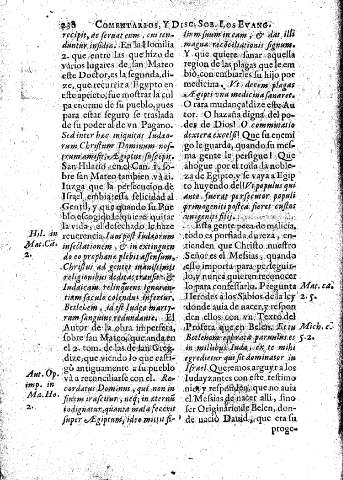 238 COMENTARIOS, Y DISC, SOB. LOS EVANG.
recipit, de servat eum, cui ten-
duntur insidiæ. En la Homilia
2. que entre las que hizo de
varios lugares de san Mateo
este Doctor, es la segunda, di-
ze, que recurrir a Egypto en
este aprieto, fue mostrar la cul
pa enorme de su pueblo, pues
para estar seguro se traslada
de su poder al de vn Pagano.
Sed inter hæc iniquitas Iudæo-
rum Christum Dominum nos-
trum amisit. Ægyptus suscepit.
San Hilario en el Can. 1. so-
bre san Mateo tambien va ai.
Iuzga que la persecucion de
Israel, embia esta felicidad al
Gentil, y que quando su Pue-
blo escogido le quiere quitar
la vida, al desechado le haze
Hil. in
Mat. Cã.
2.
Iudæorum
insectationem, & in extinguen
do eo prophanæ plebis assensum,
Christus ad gentes inanissimis
religionibus deditas transit: &
Iudaicam relinquens ignoran-
tiam sæculo colendus infertur.
Betlehem, id est Iudea marty-
rum sanguine redundante. El
Autor de la obra imperfeta,
sobre san Mateo, que anda en
el 2. tom. de las de san Greg.
dize, que viendo lo que casti-
gò antiguamente a su pueblo
và a reconciliarse con el. Re-
cordatus Dominus, qui non in
finem irascitur, neq; in æternũ
indignatur, quanta mala fecerit
super Ægyptum, ideo misit fi-
Aut. Op.
imp. in
Ma. Ho.
2.
lium suum in eam, & dat illi
magnæ recõciliationis signum.
Y que quiere sanar aquella
region de las plagas que le em
biò, con embiarles su hijo por
medicina, Vt decem plagas
Ægypti vna medicina sanaret.
O rara mudança! dize este Au
tor. O hazaña digna del po-
der de Dios! O commutatio
dexteræ excelsi! Que su enemi
go le guarda, quando su mes-
ma gente le persigue! Que
ahogue por èl toda la noble-
za de Egipto, y se vaya a Egip
to huyendo del! Vt populus qui
ante fuerat persecutor populi
primogeniti postea fieret custos
unigeniti filij.
Esta gente peca de malicia,
todo es porfiada dureza, en-
tienden que Christo nuestro
Señor es el Messias, quando
esso importa para perseguir-
lo, y nunca quieren reconocer
lo para confessarlo. Pregunta
Herodes a los Sabios de la ley
donde auia de nacer, y respon
den ellos con vn Texto del
Profeta que en Belen. Et tu
Betlehem ephrata parvulus es
in milibus Iuda, ex te mihi
egredietur qui sit dominator in
Israel. Queremos arguyr a los
Iudayzantes con este, testimo
nio y responden, que no auia
el Messias de nacer alli, sino
ser Originario de Belen, don-
de nació Dauid, que era su
Mat. ca.
2. 5.
Mich. c.
5. 2.
proge-